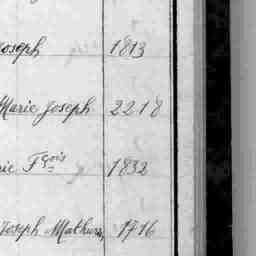 oseph 1813
Marie Joseph 2218
rie Fçois 1832
Joseph Mathurin, 1716